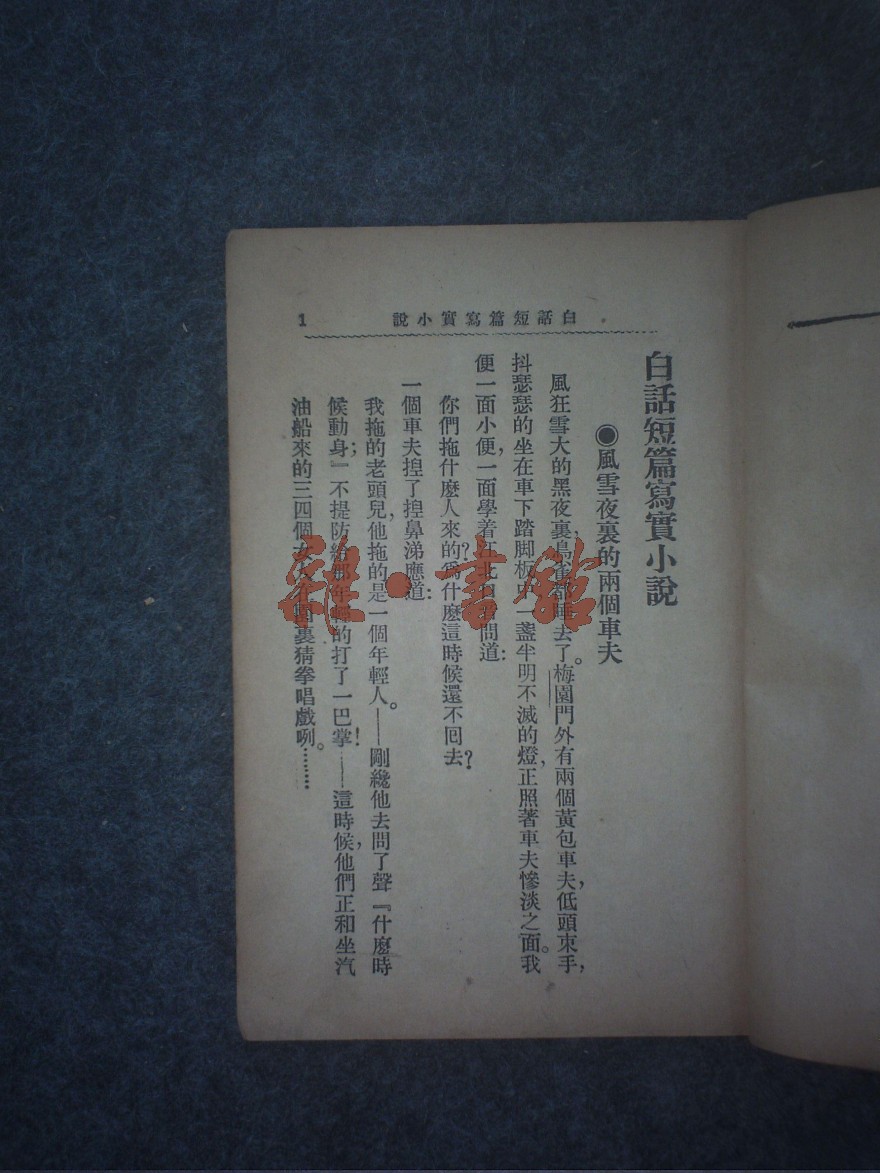 白話短篇寫實小說
1
白話短篇寫實小說
◉風雪夜裏的兩個車夫
風狂雪大的黑夜裏,鳥雀都睡去了。梅園門外有兩個黃包車夫,低頭束手,
抖瑟瑟的坐在車下踏脚板中一盞半明不滅的燈,正照著車夫慘淡之面。我
便一面小便,一面學着江北口音問道:
你們拖什麼人來的?爲什麼這時候還不回去?
一個車夫揑了揑鼻涕應道:
我拖的老頭兒,他拖的是一個年輕人。——剛纔他去問了聲『什麼時
候動身』;不提防給那年輕的打了一巴掌!——這時候,他們正和坐汽
油船來的三四個女人在園裏猜拳唱戲咧。………
雜·書館